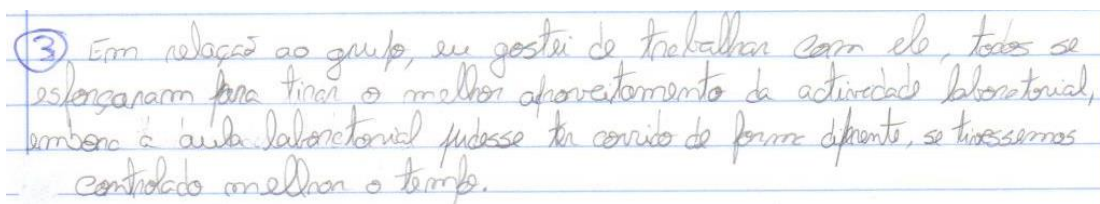 3 Em relação ao grupo, eu gostei de trabalhar com ele, todos se
esforçaram para tirar o melhor aproveitamento da actividade laboratorial,
embora a aula laboratorial pudesse ter corrido de forma diferente, se tivessemos
controlado melhor o tempo.